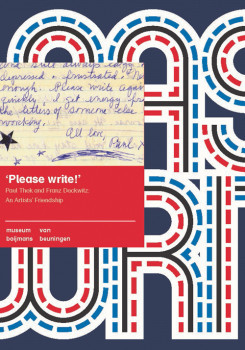 AS
depressed + frustrated.
enough. Please write again
quickly, I get energy from
the letters of someone else
All love,
Paul
'Please write!'
Paul Thek and Franz Deckwitz:
An Artists' Friendship
museum van
boijmans beuningen
WRI